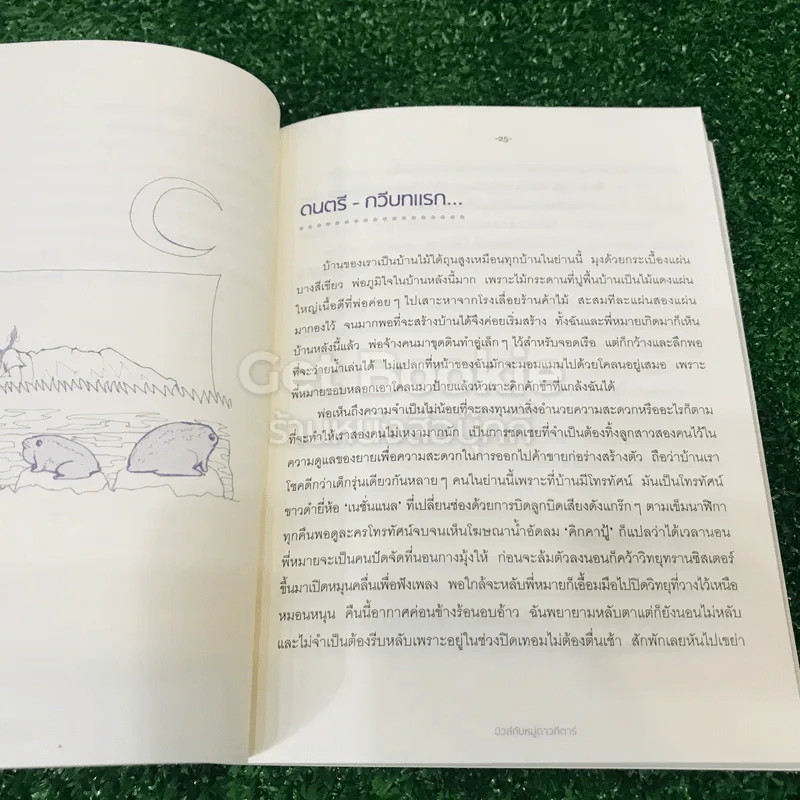 -๒๕-
ดนตรี - กวีบทแรก...
บ้านของเราเป็นบ้านไม้ใต้ถุนสูงเหมือนทุกบ้านในย่านนี้ มุงด้วยกระเบื้องแผ่น
บางสีเขียว พ่อภูมิใจในบ้านหลังนี้มาก เพราะไม้กระดานที่ปูพื้นบ้านเป็นไม้แดงแผ่น
ใหญ่เนื้อดีที่พ่อค่อยๆ ไปเสาะหาจากโรงเลื่อยร้านค้าไม้ สะสมทีละแผ่นสองแผ่น
มากองไว้ จนมากพอที่จะสร้างบ้านได้จึงค่อยเริ่มสร้าง ทั้งฉันและพี่หมายเกิดมาก็เห็น
บ้านหลังนี้แล้ว พ่อจ้างคนมาขุดดินทำอู่เล็กๆ ไว้สำหรับจอดเรือ แต่ก็กว้างและลึกพอ
ที่จะว่ายน้ำเล่นได้ ไม่แปลกที่หน้าของฉันมักจะมอมแมมไปด้วยโคลนอยู่เสมอ เพราะ
พี่หมายชอบหลอกเอาโคลนมาป้ายแล้วหัวเราะคิกคักขำที่แกล้งฉันได้
พ่อเห็นถึงความจำเป็นไม่น้อยที่จะลงทุนหาสิ่งอำนวยความสะดวกหรืออะไรก็ตาม
ที่จะทำให้เราสองคนไม่เหงามากนัก เป็นการชดเชยที่จำเป็นต้องทิ้งลูกสาวสองคนไว้ใน
ความดูแลของยายเพื่อความสะดวกในการออกไปค้าขายก่อร่างสร้างตัว ถือว่าบ้านเรา
โชคดีกว่าเด็กรุ่นเดียวกันหลายๆ คนในย่านนี้เพราะที่บ้านมีโทรทัศน์ มันเป็นโทรทัศน์
ขาวดำยี่ห้อ 'เนชั่นแนล' ที่เปลี่ยนช่องด้วยการบิดลูกบิดเสียงดังแกร๊กๆ ตามเข็มนาฬิกา
ทุกคืนพอดูละครโทรทัศน์จบจนเห็นโฆษณาน้ำอัดลม 'คิกคาปู้' ก็แปลว่าได้เวลานอน
พี่หมายจะเป็นคนปัดจัดที่นอนกางมุ้งให้ ก่อนจะล้มตัวลงนอนก็คว้าวิทยุทรานซิสเตอร์
ขึ้นมาเปิดหมุนคลื่นเพื่อฟังเพลง พอใกล้จะหลับพี่หมายก็เอื้อมมือไปปิดวิทยุที่วางไว้เหนือ
หมอนหนุน คืนนี้อากาศค่อนข้างร้อนอบอ้าว ฉันพยายามหลับตาแต่ก็ยังนอนไม่หลับ
และไม่จำเป็นต้องรีบหลับเพราะอยู่ในช่วงปิดเทอมไม่ต้องตื่นเช้า สักพักเลยหันไปเขย่า
มิวส์กับหมู่ดาวกีตาร์